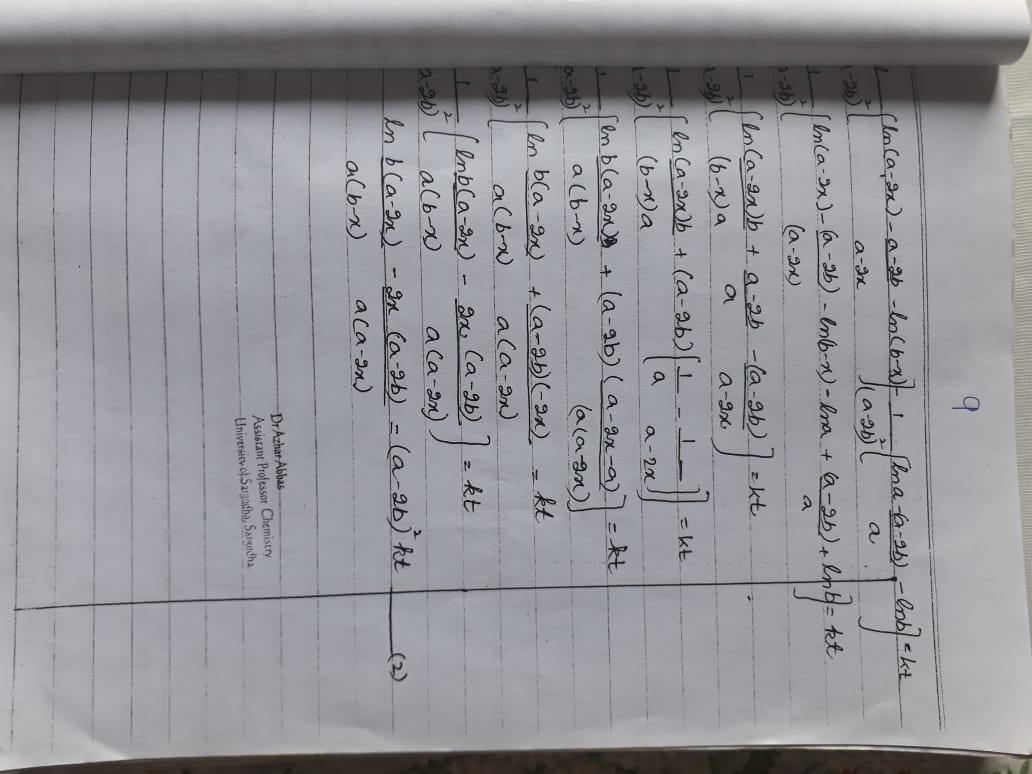 9
1/(a-2b)² [ln(a-2x) - (a-2b)/(a-2x) - ln(b-x)] - 1/(a-2b)² [lna - (a-2b)/a - lnb] = kt
1/(a-2b)² [ln(a-2x) - (a-2b)/(a-2x) - ln(b-x) - lna + (a-2b)/a + lnb] = kt
1/(a-2b)² [ln (a-2x)b/(b-x)a + (a-2b)/a - (a-2b)/(a-2x)] = kt
1/(a-2b)² [ln (a-2x)b/(b-x)a + (a-2b) (1/a - 1/(a-2x))] = kt
1/(a-2b)² [ln b(a-2x)/a(b-x) + (a-2b) ((a-2x-a)/(a(a-2x)))] = kt
1/(a-2b)² [ln b(a-2x)/a(b-x) + (a-2b)(-2x)/a(a-2x) = kt
1/(a-2b)² [ln b(a-2x)/a(b-x) - 2x.(a-2b)/a(a-2x)] = kt
ln b(a-2x)/a(b-x) - 2x(a-2b)/a(a-2x) = (a-2b)² kt —(2)
Dr Azhar Abbas
Assistant Professor Chemistry
University of Sargodha, Sargodha